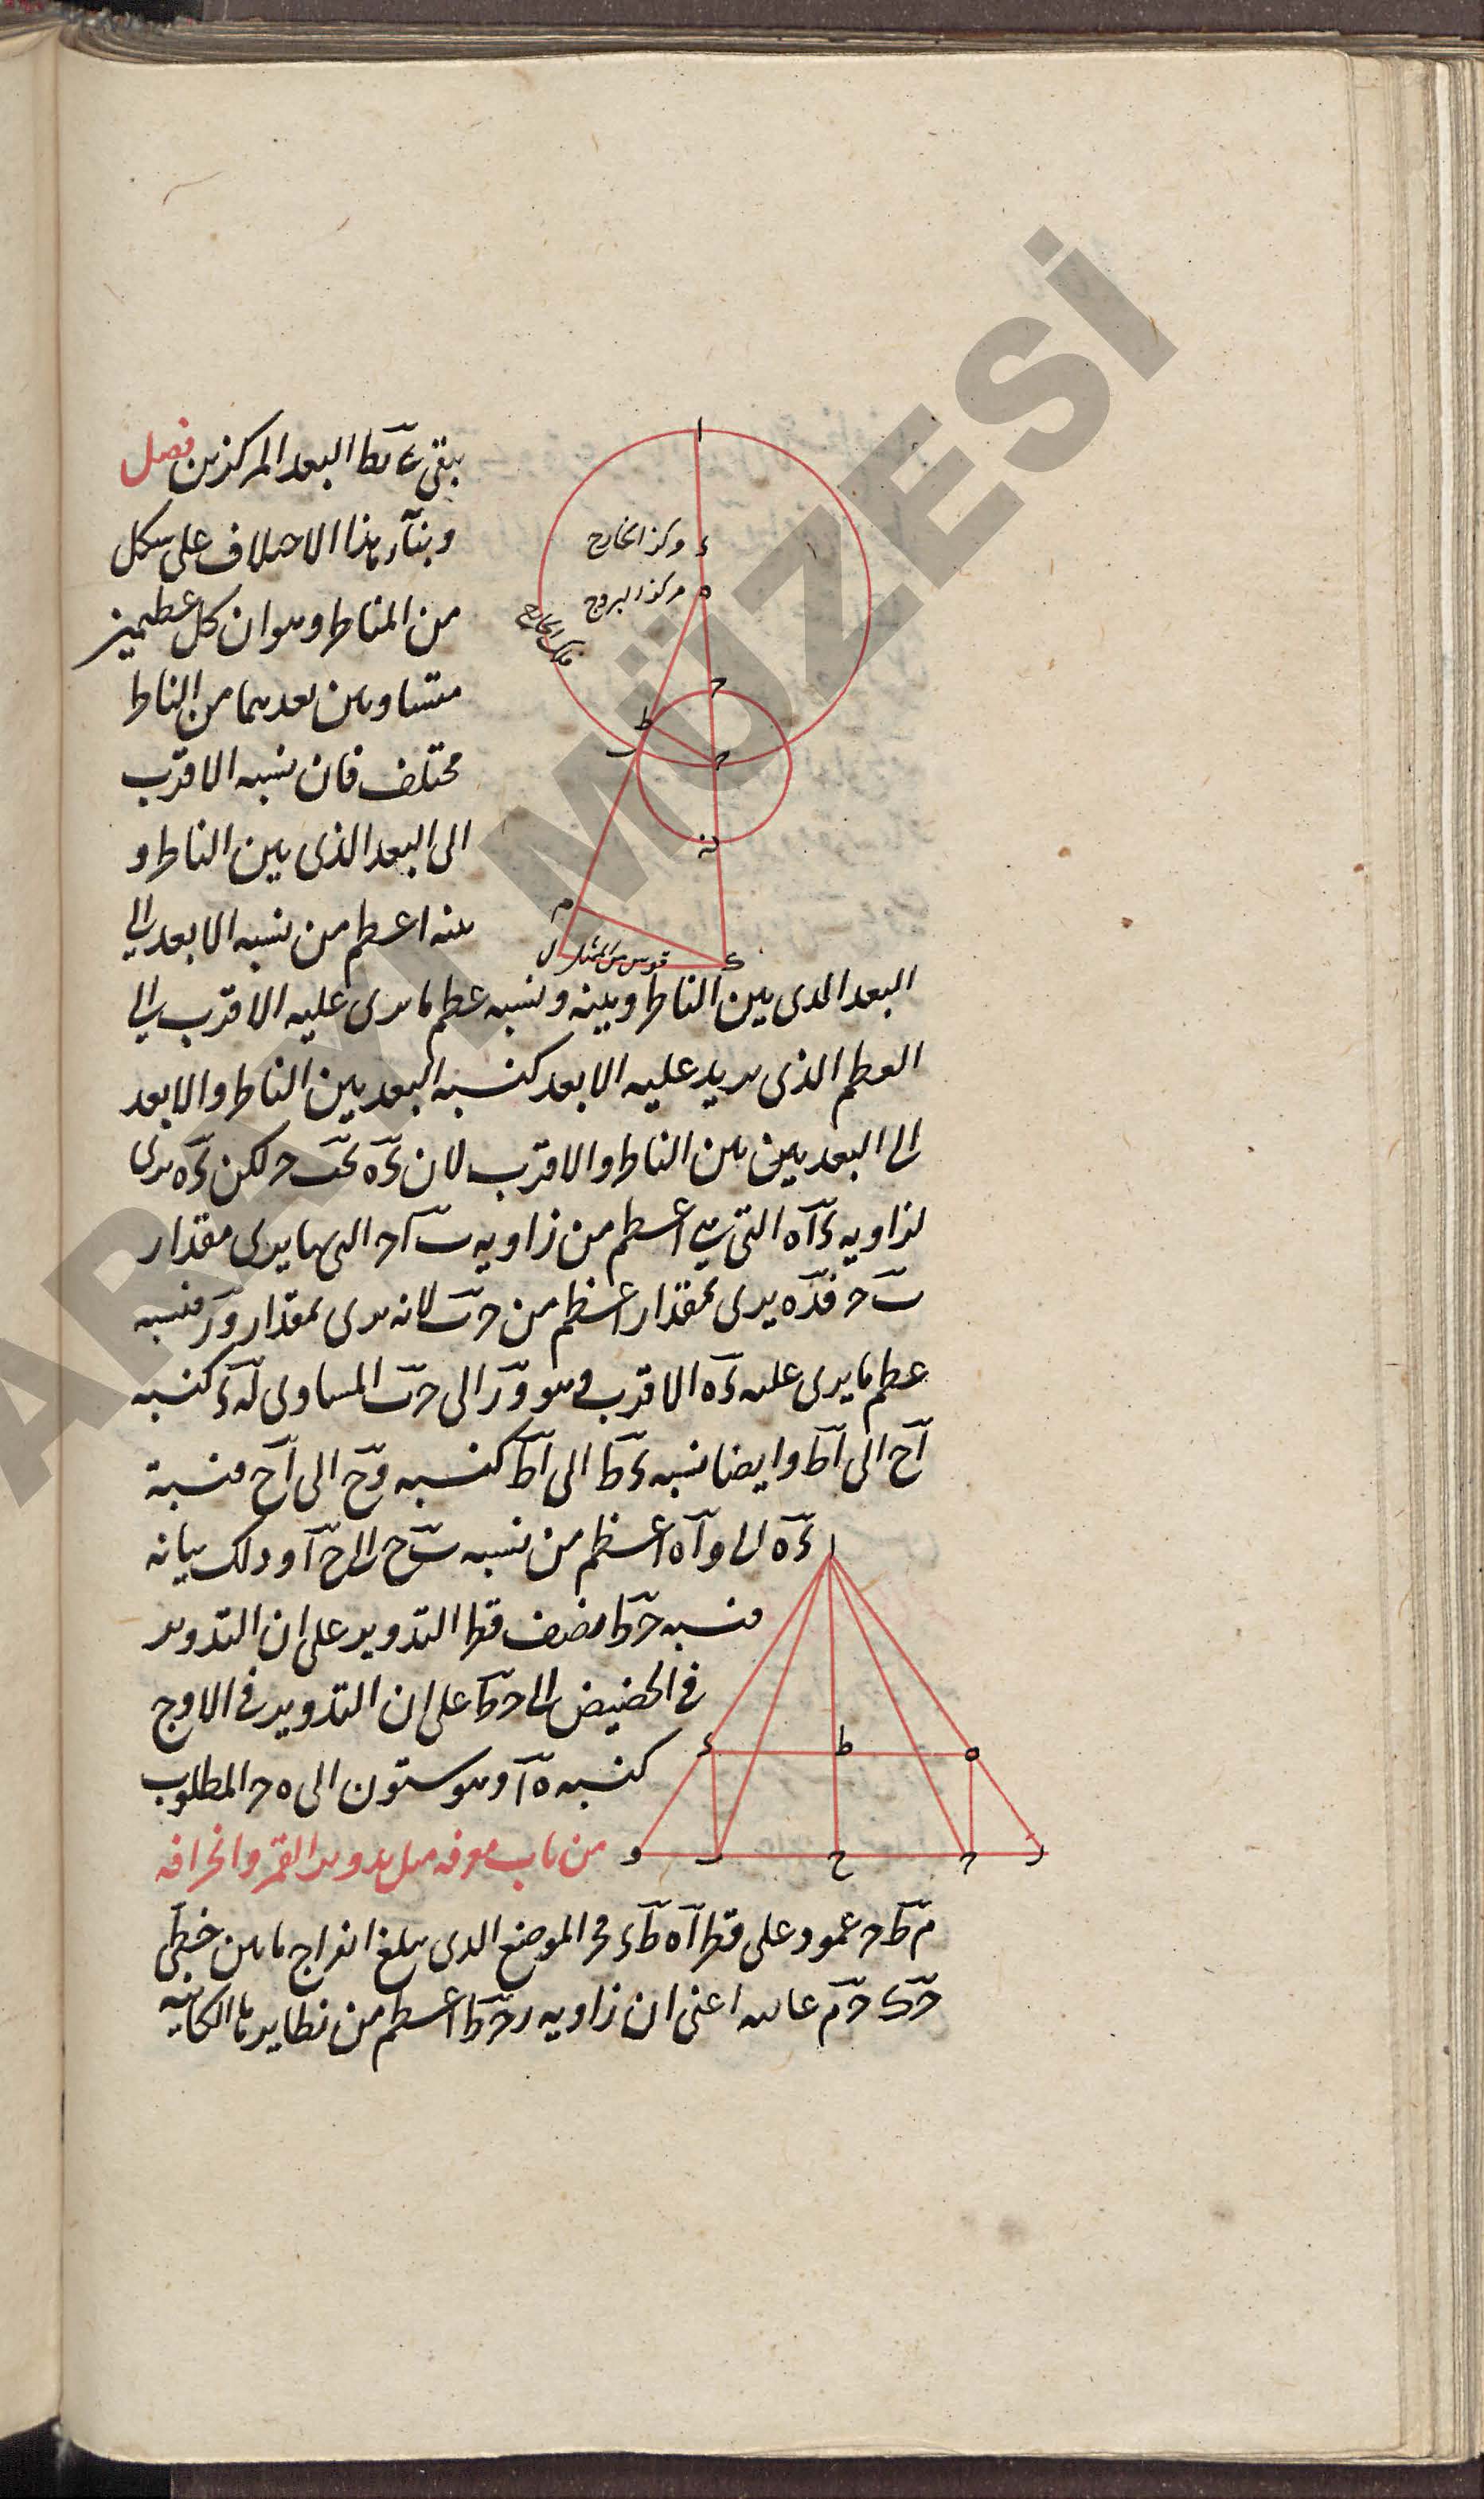 يبقى ءَ نَط البعد المركزين فصل
وبناء هذا الاختلاف على شكل
من المناظر وهو ان كل عظمين
متساويين بعدهما من الناظر
مختلف فان نسبة الاقرب
الى البعد الذى بين الناظر و
بينه اعظم من نسبة الابعد الى
البعد الذى بين الناظر وبينه ونسبة عظم ما يرى عليه الاقرب الى
العظم الذى يريد عليه الابعد كنسبة البعد بين الناظر والابعد
الى البعد بين بين الناظر والاقرب لان ءه تحت ح لكن ءه يرى
لزاوية ءاه التى هى اعظم من زاوية ب اح التى بها يرى مقدار
ب ح فده يرى بمقدار اعظم من ح ب لانه يرى بمقدار ور فنسبة
عظم ما يرى عليه ءه الاقرب وهو ور الى ح ب المساوى له ء كنسبة
اح الى اط وايضا نسبة ءط الى اط كنسبة وح الى اح فنسبة
ءه الى واه اعظم من نسبة ب ح الى ح ا وذلك بيانه
فنسبة ح ط نصف قطر التدوير على ان التدوير
فى الحضيض الى ح ط على ان التدوير فى الاوج
كنسبة ه ا وهو ستون الى ه ح المطلوب
من باب معرفة ميل تدوير القمر وانحرافه
م ط ح عمود على قطر اه ط ء فى الموضع الذى يبلغ انفراج ما بين خطى
ح ك ح م غايته اعنى ان زاوية ر ح ط اعظم من نظايرها الكائنة
ا
ء مركز الخارج
ه مركز البروج
فلك الخارج
ح
ط
ب
ح
م
ل
قوس من الممثل
ك
ا
ء
ط
ه
و
ب
ح
ح
ر
ARAYI MÜZESİ